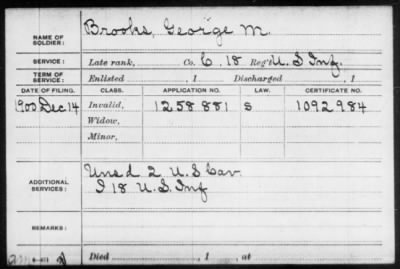 NAME OF SOLDIER: Brooks, George M.
SERVICE: Late rank, Co. C, 18 Reg't U.S Inf.
TERM OF SERVICE: Enlisted , 1 Discharged , 1
DATE OF FILING. CLASS. APPLICATION NO. LAW. CERTIFICATE NO.
1900 Dec 14 Invalid, 1258881 S 1092984
Widow,
Minor,
ADDITIONAL SERVICES: Unsd 2 U.S Cav
I 18 U.S. Inf
REMARKS:
Died , 1 , at